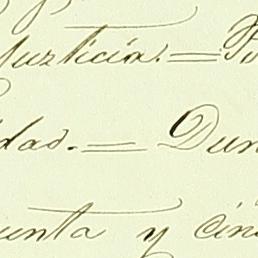 Justicia. = 
idad. = Dun
uenta y cin